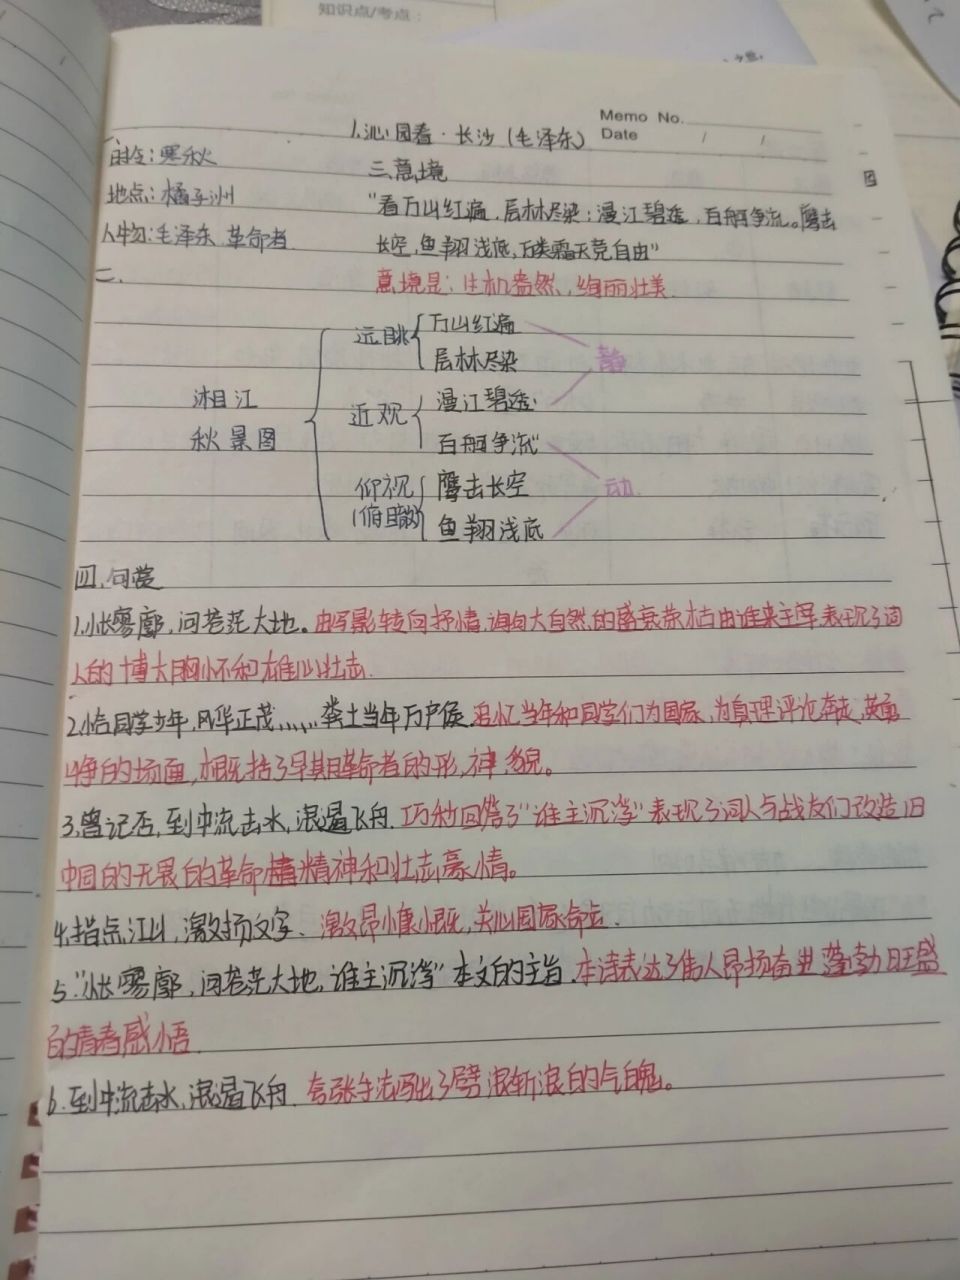 知识点/考点：
Memo No.
Date / /
1.沁园春·长沙（毛泽东）
一、
时令：寒秋
地点：橘子洲
人物：毛泽东 革命者
二、
三、意境
“看万山红遍，层林尽染；漫江碧透，百舸争流。鹰击
长空，鱼翔浅底，万类霜天竞自由”
意境是：生机盎然，绚丽壮美
湘江
秋景图
远眺
万山红遍
层林尽染
静
近观
漫江碧透
百舸争流
仰视
(俯瞰)
鹰击长空
鱼翔浅底
动
四、句赏
1.怅寥廓，问苍茫大地。由写景转向抒情，询问大自然的盛衰荣枯由谁来主宰，表现了词
人的博大胸怀和雄心壮志.
2.恰同学少年，风华正茂……粪土当年万户侯.追忆当年和同学们为国家，为真理评论奔走，英勇
斗争的场面，概括了早期革命者的形，神，貌。
3.曾记否，到中流击水，浪遏飞舟.巧妙回答了“谁主沉浮”表现了词人与战友们改造旧
中国的无畏的革命精神和壮志豪情。
4.指点江山，激扬文字.激昂慷慨，关心国家命运.
5.“怅寥廓，问苍茫大地，谁主沉浮”本文的主旨.本诗表达了伟人昂扬奋进 蓬勃旺盛
的青春感悟.
6.到中流击水，浪遏飞舟.夸张手法写出了劈浪斩浪的气魄。